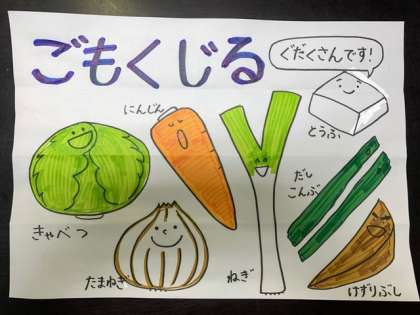 ごもくじる
ぐだくさんです!
にんじん
とうふ
きゃべつ
たまねぎ
ねぎ
だし
こんぶ
けずりぶし